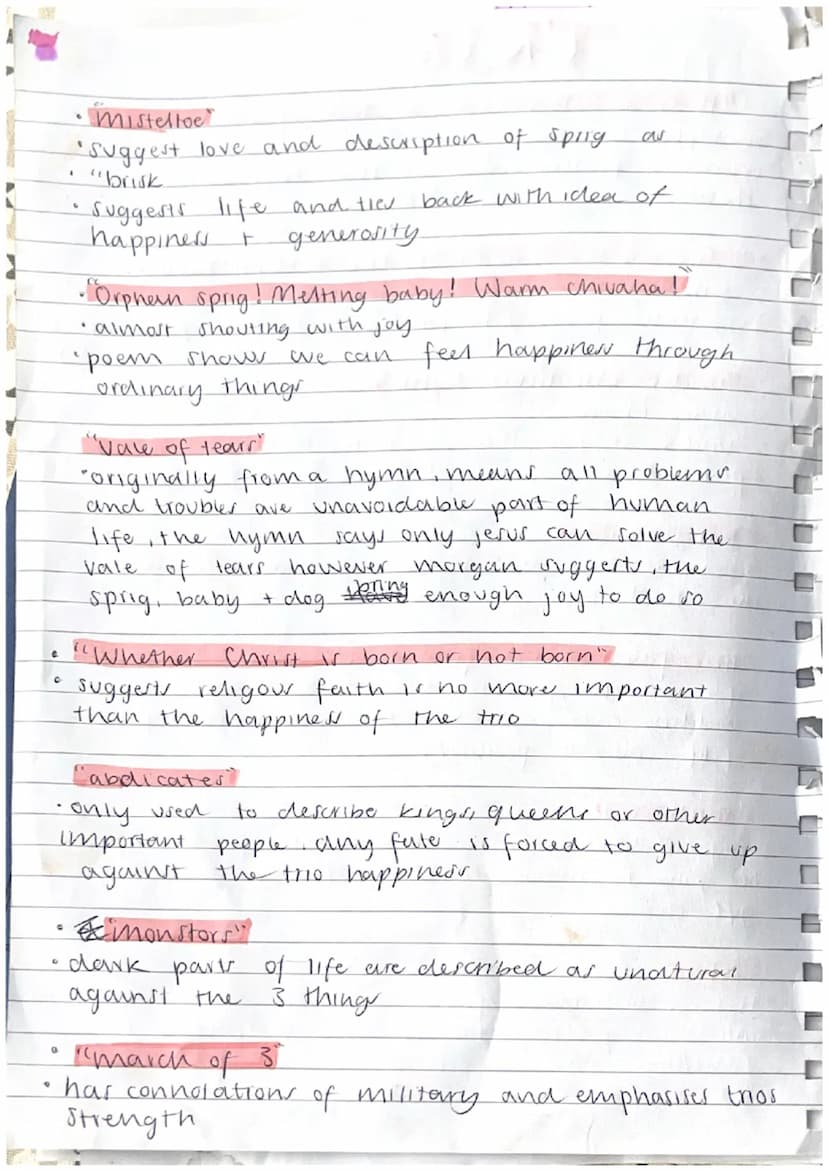 • "Misteltoe"
• suggest love and description of sprig as
• "brisk
• suggests life and ties back with idea of
happiness + generosity
• "Orphean sprig! Melting baby! Warm chihaha!"
• almost shouting with joy
• poem shows we can feel happiness through
ordinary things
"Vale of tears"
• originally from a hymn, means all problems
and troubles are unavoidable part of human
life, the hymn says only jesus can solve the
vale of tears however morgan suggests, the
sprig, baby + dog bring enough joy to do so
• "Whether Christ is born or not born"
• suggests religous faith is no more important
than the happiness of the trio
"abdicates"
• only used to describe kings, queens or other
important people. any fate is forced to give up
against the trio happiness
• "monstors"
• dark parts of life are described as unatural
against the 3 things
• "march of 3"
• has connotations of military and emphasises trios
strength